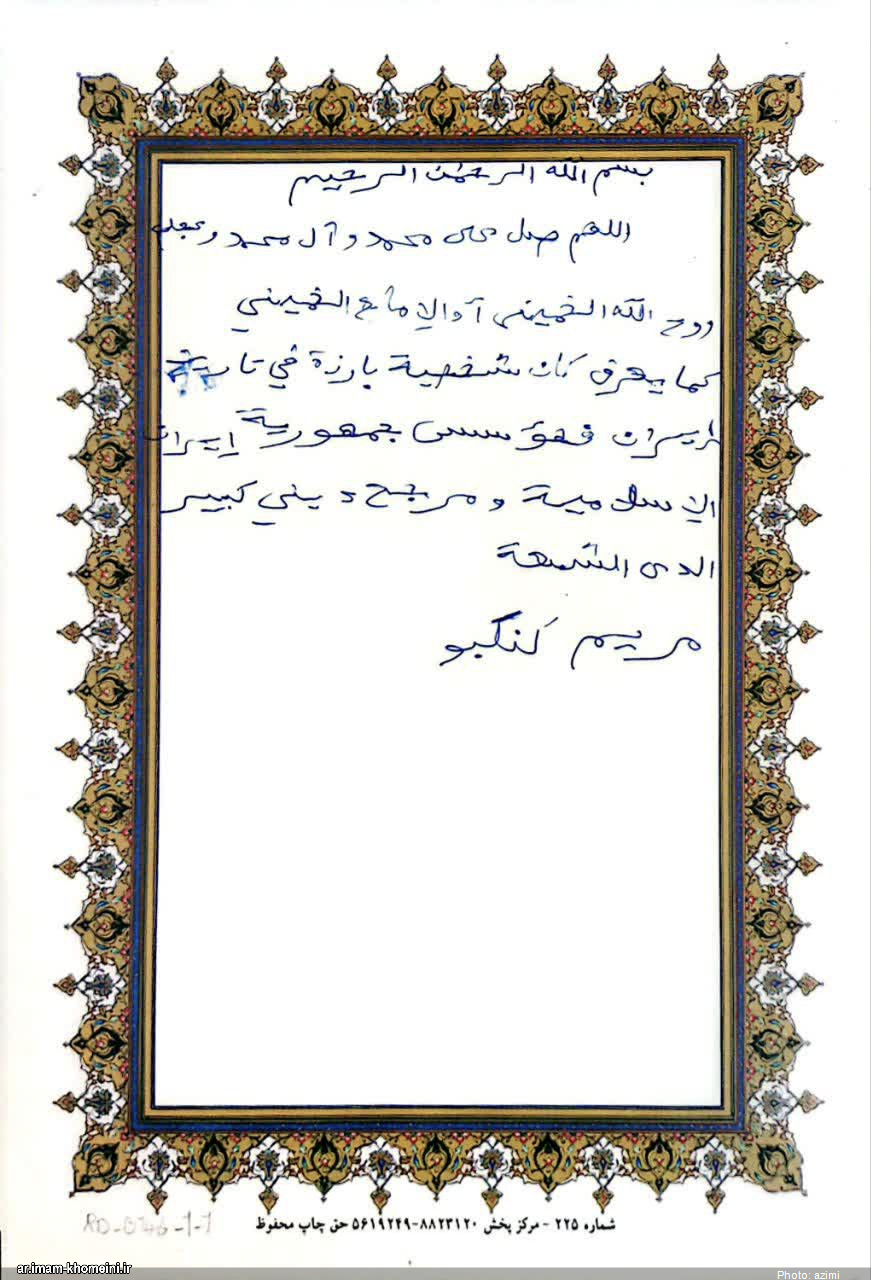 بسم الله الرحمٰن الرحيم
اللهم صل على محمد و آل محمد و عجل
روح الله الخميني أو الإمام الخميني
كما يعرف كان شخصية بارزة في تاريخ
إيران فهو مؤسس جمهورية إيران
الإسلامية و مرجع ديني كبير
الدى الشيعة
مريم كنگبو
شماره ۲۲۵ - مرکز پخش ۸۸۲۳۱۲۰-۵۶۱۹۲۴۹ حق چاپ محفوظ
ar.imam-khomeini.ir
Photo: azimi